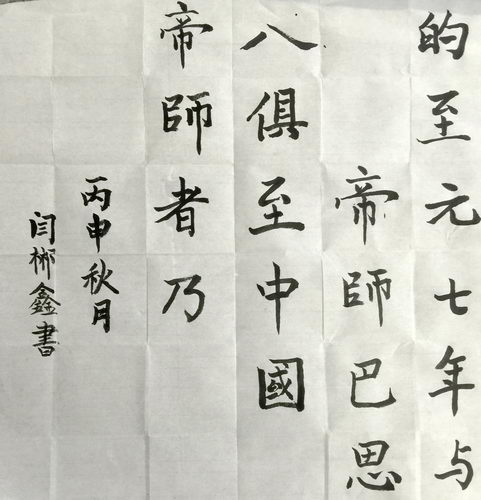 的至元七年与
帝師巴思
八俱至中國
帝師者乃
丙申秋月
闫郴鑫書